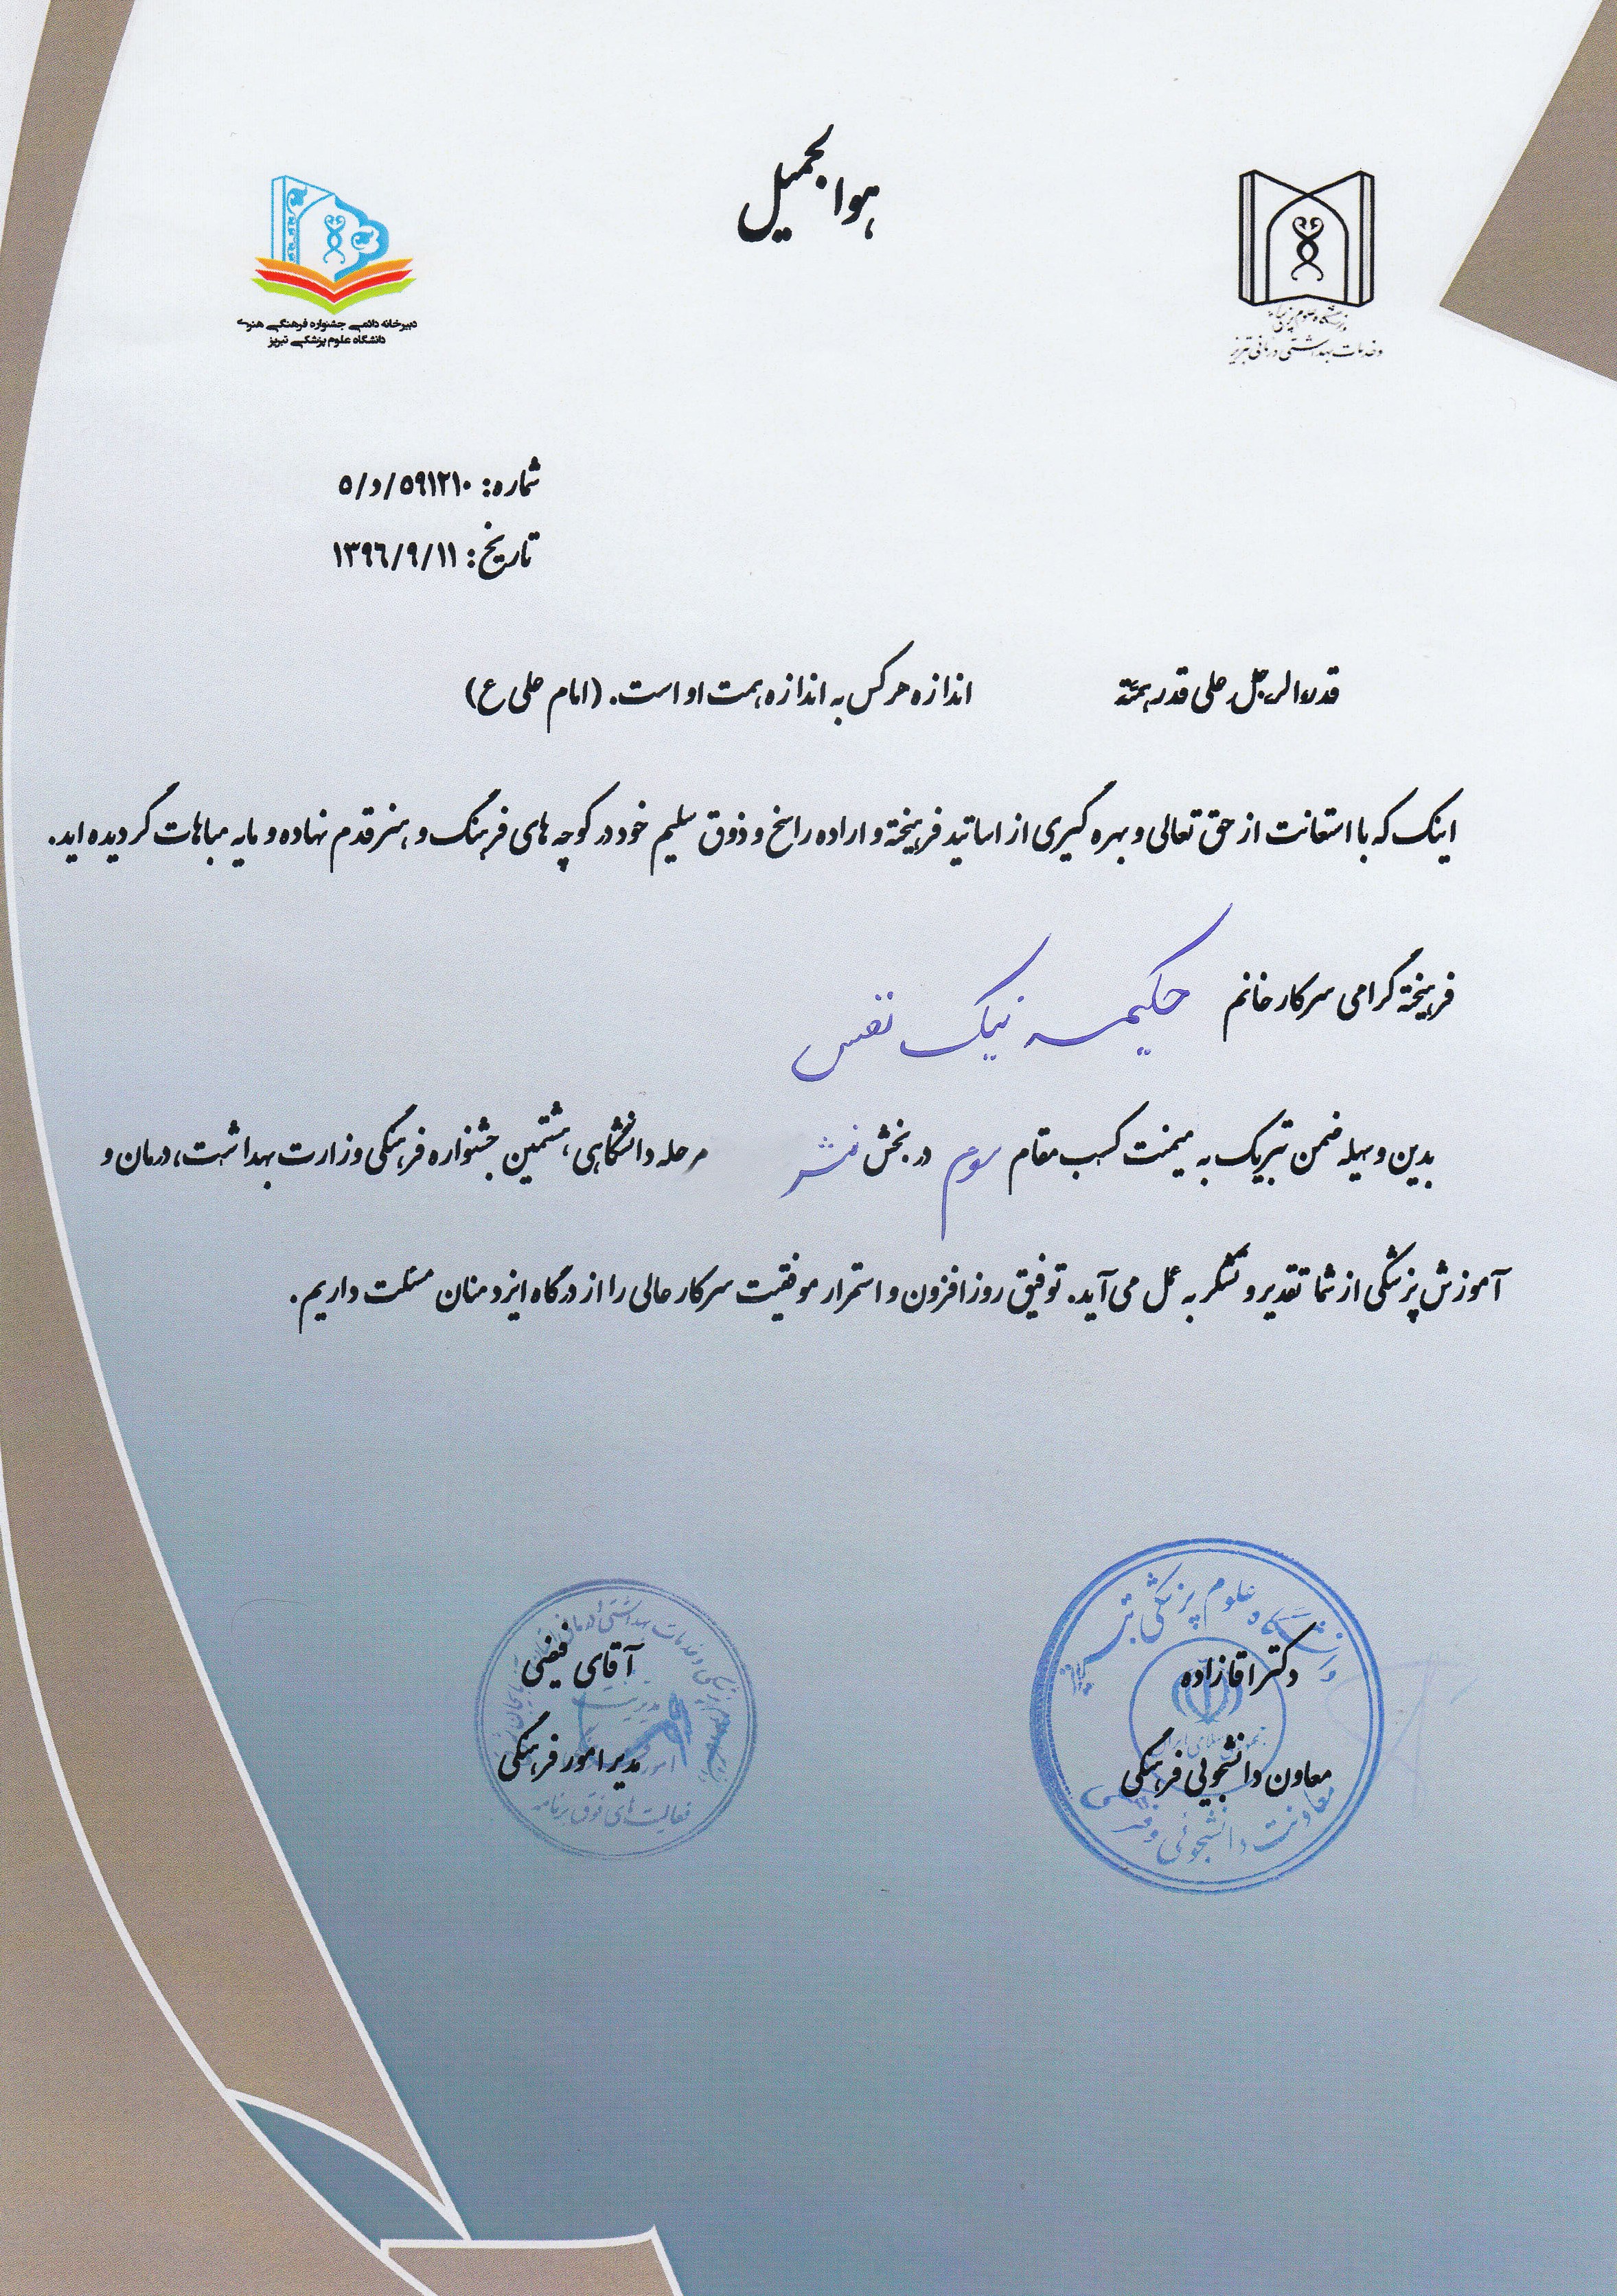 هوالجمیل
دانشگاه علوم پزشکی
و خدمات بهداشتی درمانی تبریز
دبیرخانه دائمی جشنواره فرهنگی هنری
دانشگاه علوم پزشکی تبریز
شماره: ۵۹۱۲۱۰/د/۵
تاریخ: ۱۳۹۶/۹/۱۱
قدر الرجل علی قدر همته اندازه هر کس به اندازه همت او است. (امام علی ع)
اینک که با استعانت از حق تعالی و بهره گیری از اساتید فرهیخته و اراده راسخ و ذوق سلیم خود در کوچه های فرهنگ و هنر قدم نهاده و مایه مباهات گردیده اید.
فرهیخته گرامی سرکار خانم حکیمه نیک نفس
بدین وسیله ضمن تبریک به میمنت کسب مقام سوم در بخش نشر مرحله دانشگاهی هشتمین جشنواره فرهنگی وزارت بهداشت، درمان و
آموزش پزشکی از شما تقدیر و تشکر به عمل می آید. توفیق روز افزون و استمرار موفقیت سرکار عالی را از درگاه ایزد منان مسئلت داریم.
دکتر اقازاده
معاون دانشجویی فرهنگی
دانشگاه علوم پزشکی تبریز
جمهوری اسلامی ایران
معاونت دانشجوئی و فرهنگی
آقای فیضی
مدیر امور فرهنگی
فعالیت های فوق برنامه